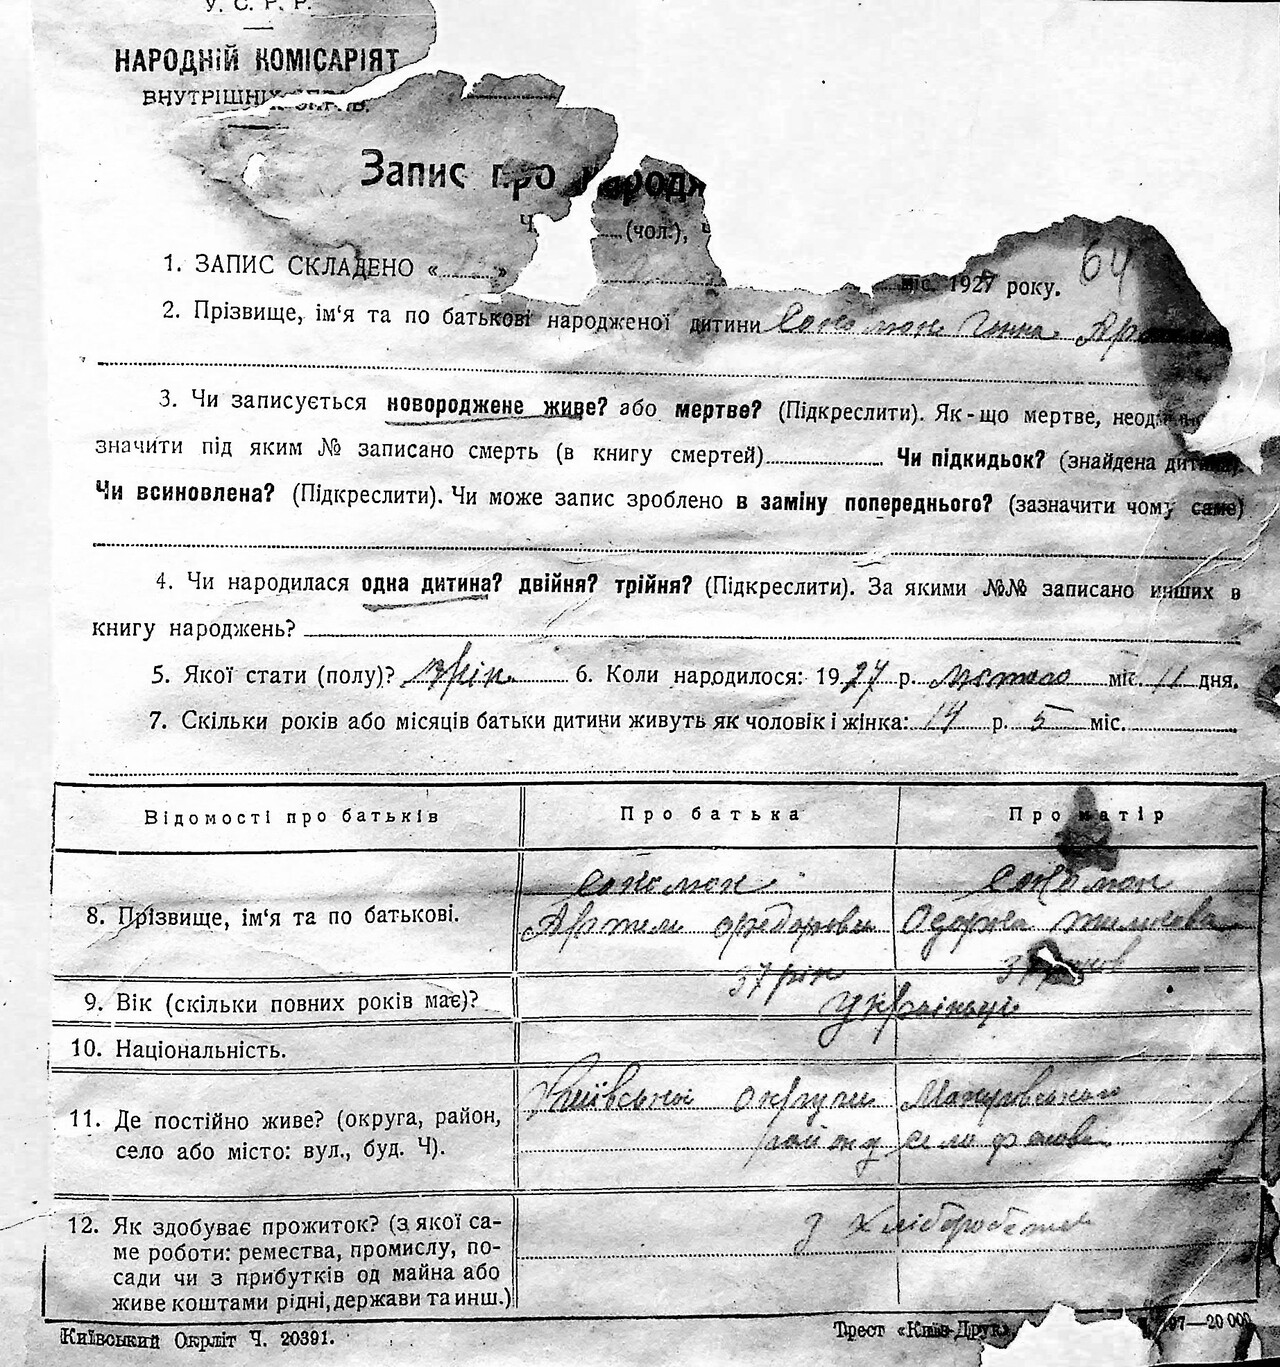 У. С. Р. Р.
НАРОДНІЙ КОМІСАРІЯТ
ВНУТРІШНІХ СПРАВ.
Запис про народж
Ч. (чол.), Ч
64
1. ЗАПИС СКЛАДЕНО « » міс. 1927 року.
2. Прізвище, ім'я та по батькові народженої дитини
3. Чи записується новороджене живе? або мертве? (Підкреслити). Як-що мертве, неод
значити під яким № записано смерть (в книгу смертей) Чи підкидьок? (знайдена дитина).
Чи всиновлена? (Підкреслити). Чи може запис зроблено в заміну попереднього? (зазначити чому саме)
4. Чи народилася одна дитина? двійня? трійня? (Підкреслити). За якими №№ записано инших в
книгу народжень?
5. Якої стати (полу)? 6. Коли народилося: 1927 р. лютого міс. 11 дня.
7. Скільки років або місяців батьки дитини живуть як чоловік і жінка: 14 р. 5 міс.
Відомості про батьків Про батька Про матір
8. Прізвище, ім'я та по батькові.
Артем Федорович Одарка
37 рік 37
9. Вік (скільки повних років має)?
Українці
10. Національність.
11. Де постійно живе? (округа, район,
село або місто: вул., буд. Ч).
Київської округи Макарівського
район село
12. Як здобуває прожиток? (з якої са-
ме роботи: ремества, промислу, по-
сади чи з прибутків од майна або
живе коштами рідні, держави та инш.)
з хліборобства
Київський Окрліт Ч. 20391.
Трест «Київ-Друк», 97—20 000